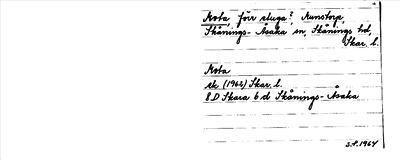 Mota, förr stuga?, Munstorp,
Skånings-Åsaka sn, Skånings hd,
Skar. l.
Mota
ek (1962) Skar. l.
8D Skara 6 d Skånings-Åsaka
S.F. 1964